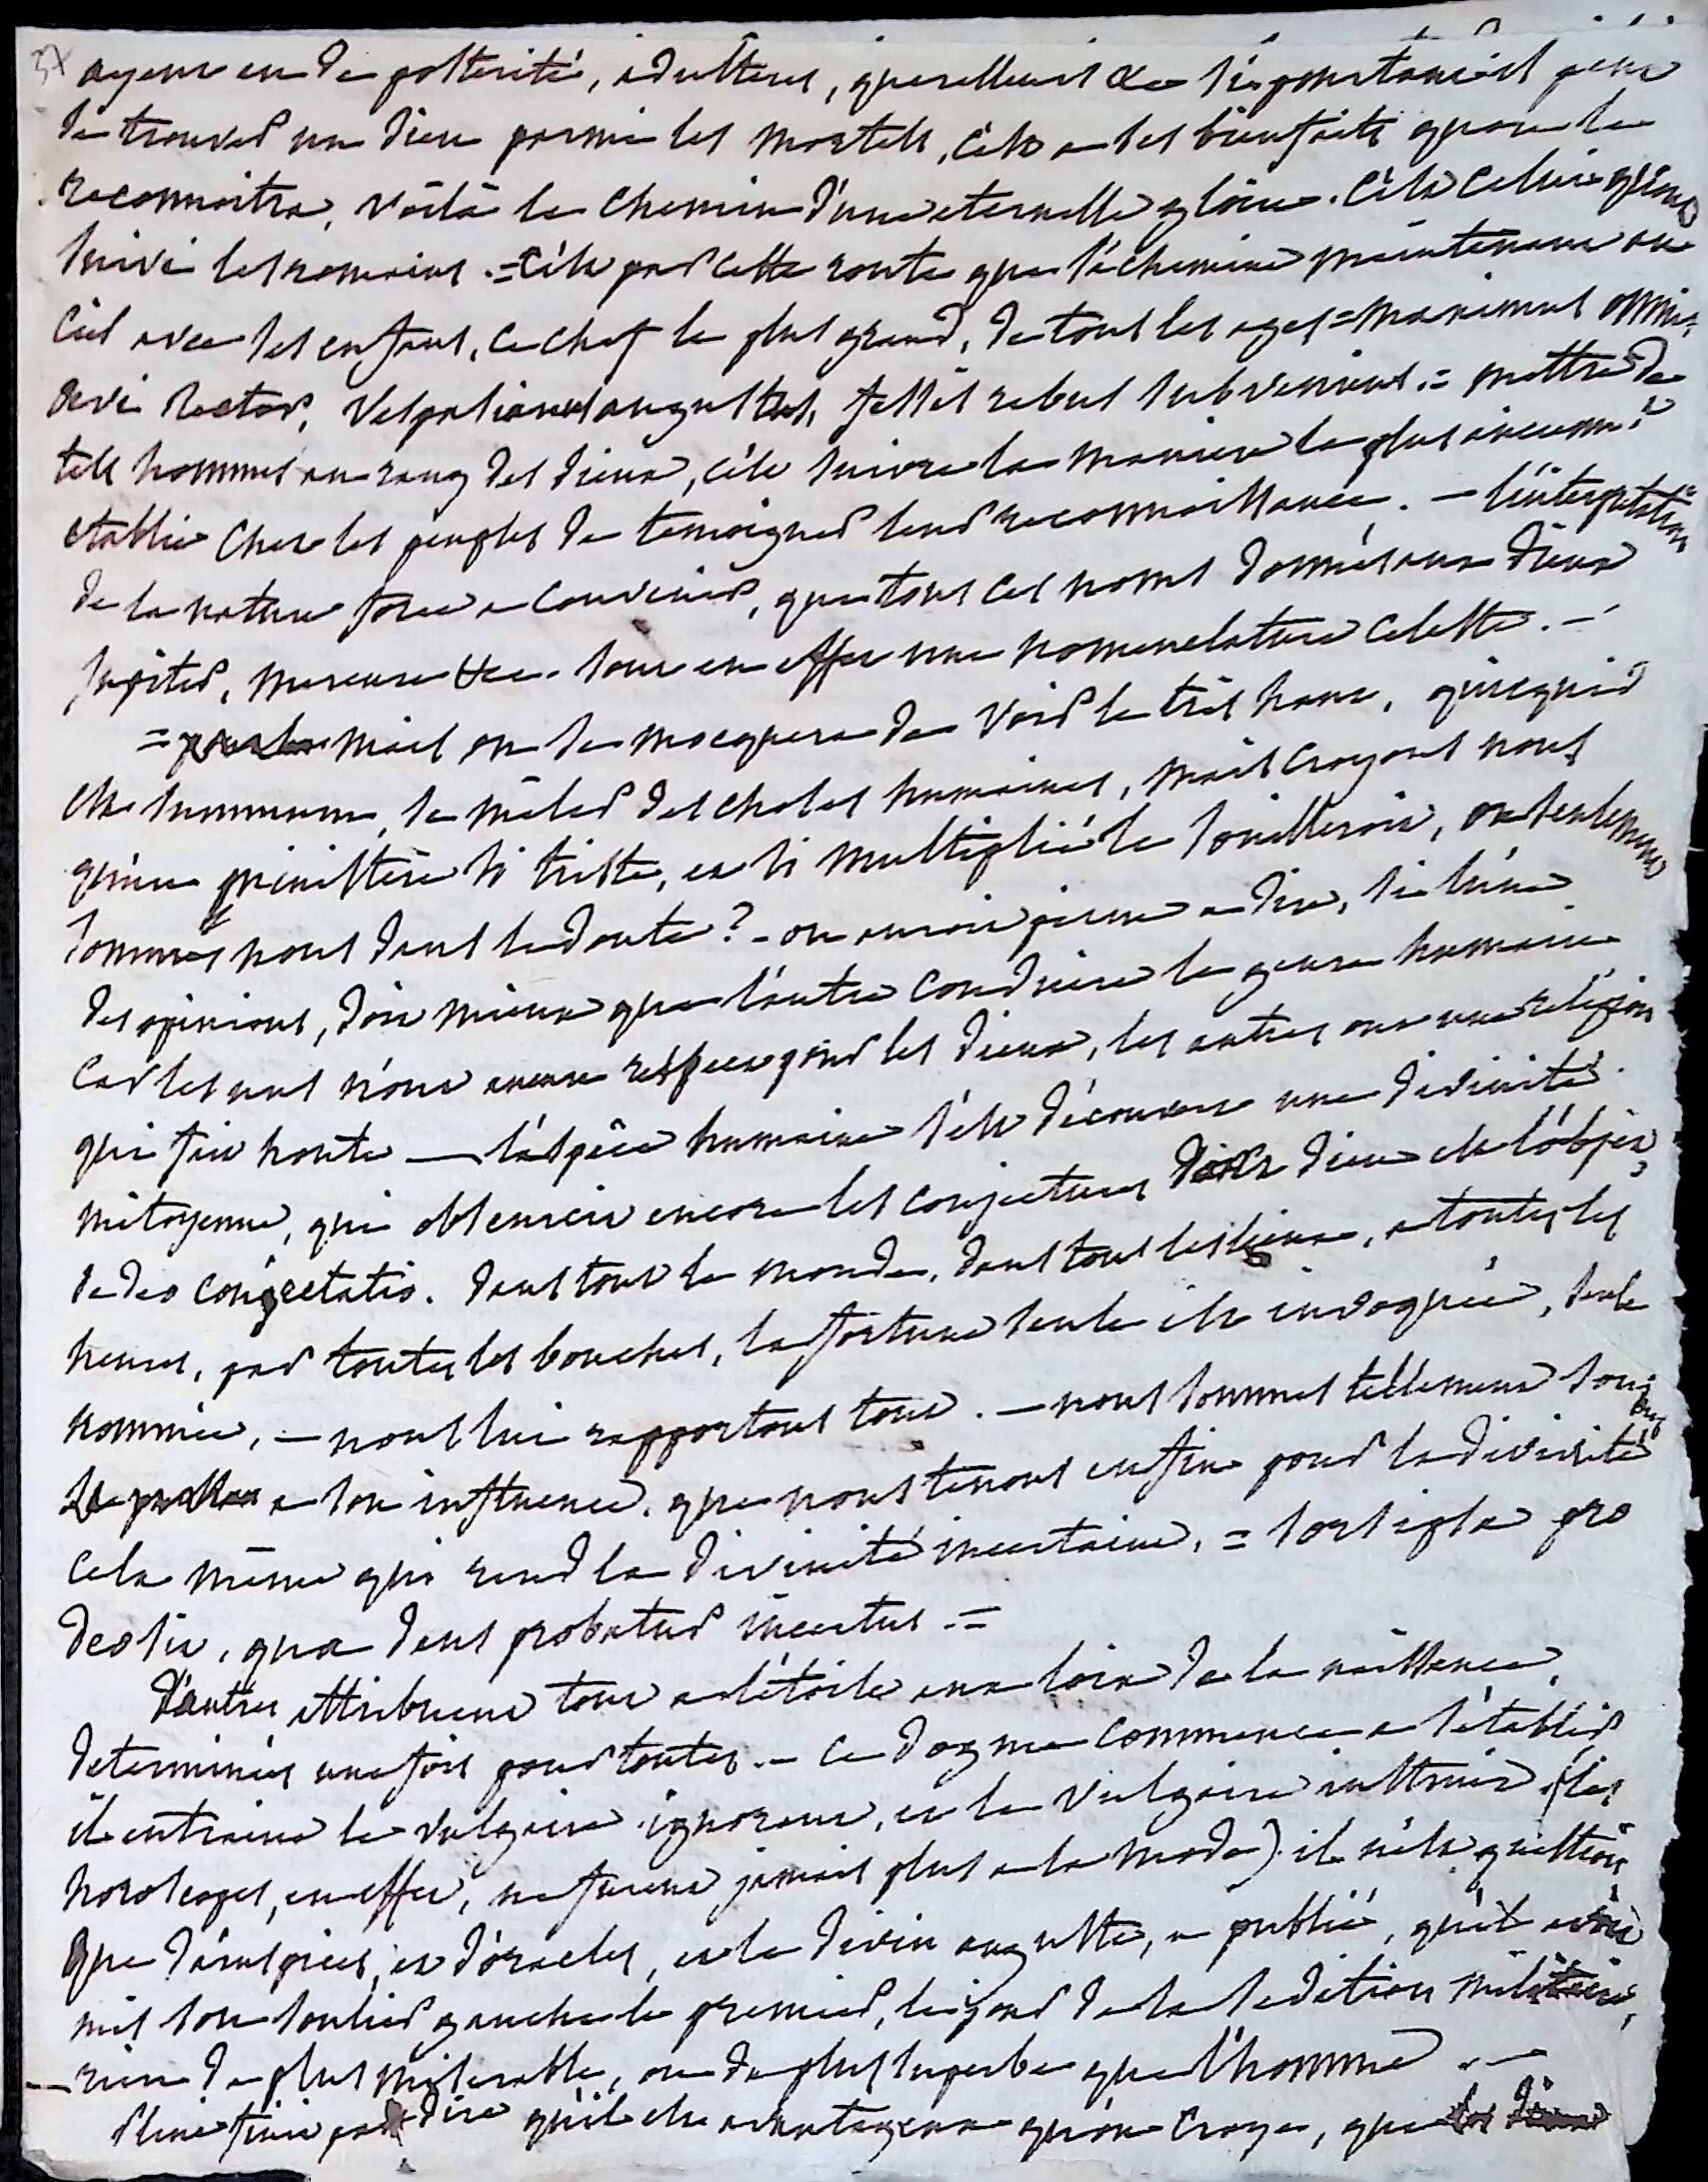 ayent eu de posterité, adulteres, querelleurs &c s'emportant il peut
de trouver un dieu parmi les mortels, c'est a ses bienfaits qu'on le
reconnoitra, voilà le chemin d'une eternelle gloire. c'est celui qu'ont
suivi les romains. = c'est par cette route que s'achemine maintenant au
ciel avec ses enfans, ce chef le plus grand, de tous les ages = maximus omnis
aevi rector, Vespasianus augustus, fessis rebus subveniens. = mettre de
tels hommes au rang des dieux, c'est suivre la maniere la plus anciennt
etablie chez les peuples de temoigner leur reconnoissance. — l'interpretation
de la nature force a convenir, que tous ces noms donnés aux dieux
jupiter, mercure &c. sont en effet une nomenclature celeste. —
= mais on se mocquera de voir le très haut, quicquid
est summum, se mêler des choses humaines, mais croyons nous
qu'un ministere si triste, et si multiplié le souilleroit, ou seulement
sommes nous dans le doute? - on auroit peine a dire, si l'une
des opinions, doit mieux que l'autre conduire le genre humain
car les uns n'ont aucun respect pour les dieux, les autres ont une religion
qui fait honte — l'espèce humaine s'est découvert une divinité
mitoyenne, qui obscurcit encore les conjectures dont dieu est l'objet,
de deo conjectatio. dans tout le monde, dans tous les lieux, a toutes les
heures, par toutes les bouches, la fortune seule est invoquée, seule
nommée, — nous lui rapportons tout. — nous sommes tellement soumis
a son influence, que nous tenons enfin pour la divinité
cela même qui rend la divinité incertaine, = sors ipsa pro
deo sit, qua deus probatur incertus. =
D'autres attribuent tout a l'étoile aux loix de la naissance,
determinées une fois pour toutes. — ce dogme commence a s'établir
il entraine le vulgaire ignorant, et le vulgaire instruit (les
horoscopes, en effet, ne furent jamais plus a la mode) il n'est question
que d'auspices, et d'oracles, et le divin auguste, a publié, qu'il avoit
mis son soulier gauche le premier, le jour de la sedition militaire,
— rien de plus miserable, ou de plus superbe que l'homme . —
Pline finit par dire qu'il est avantageux qu'on croye, que